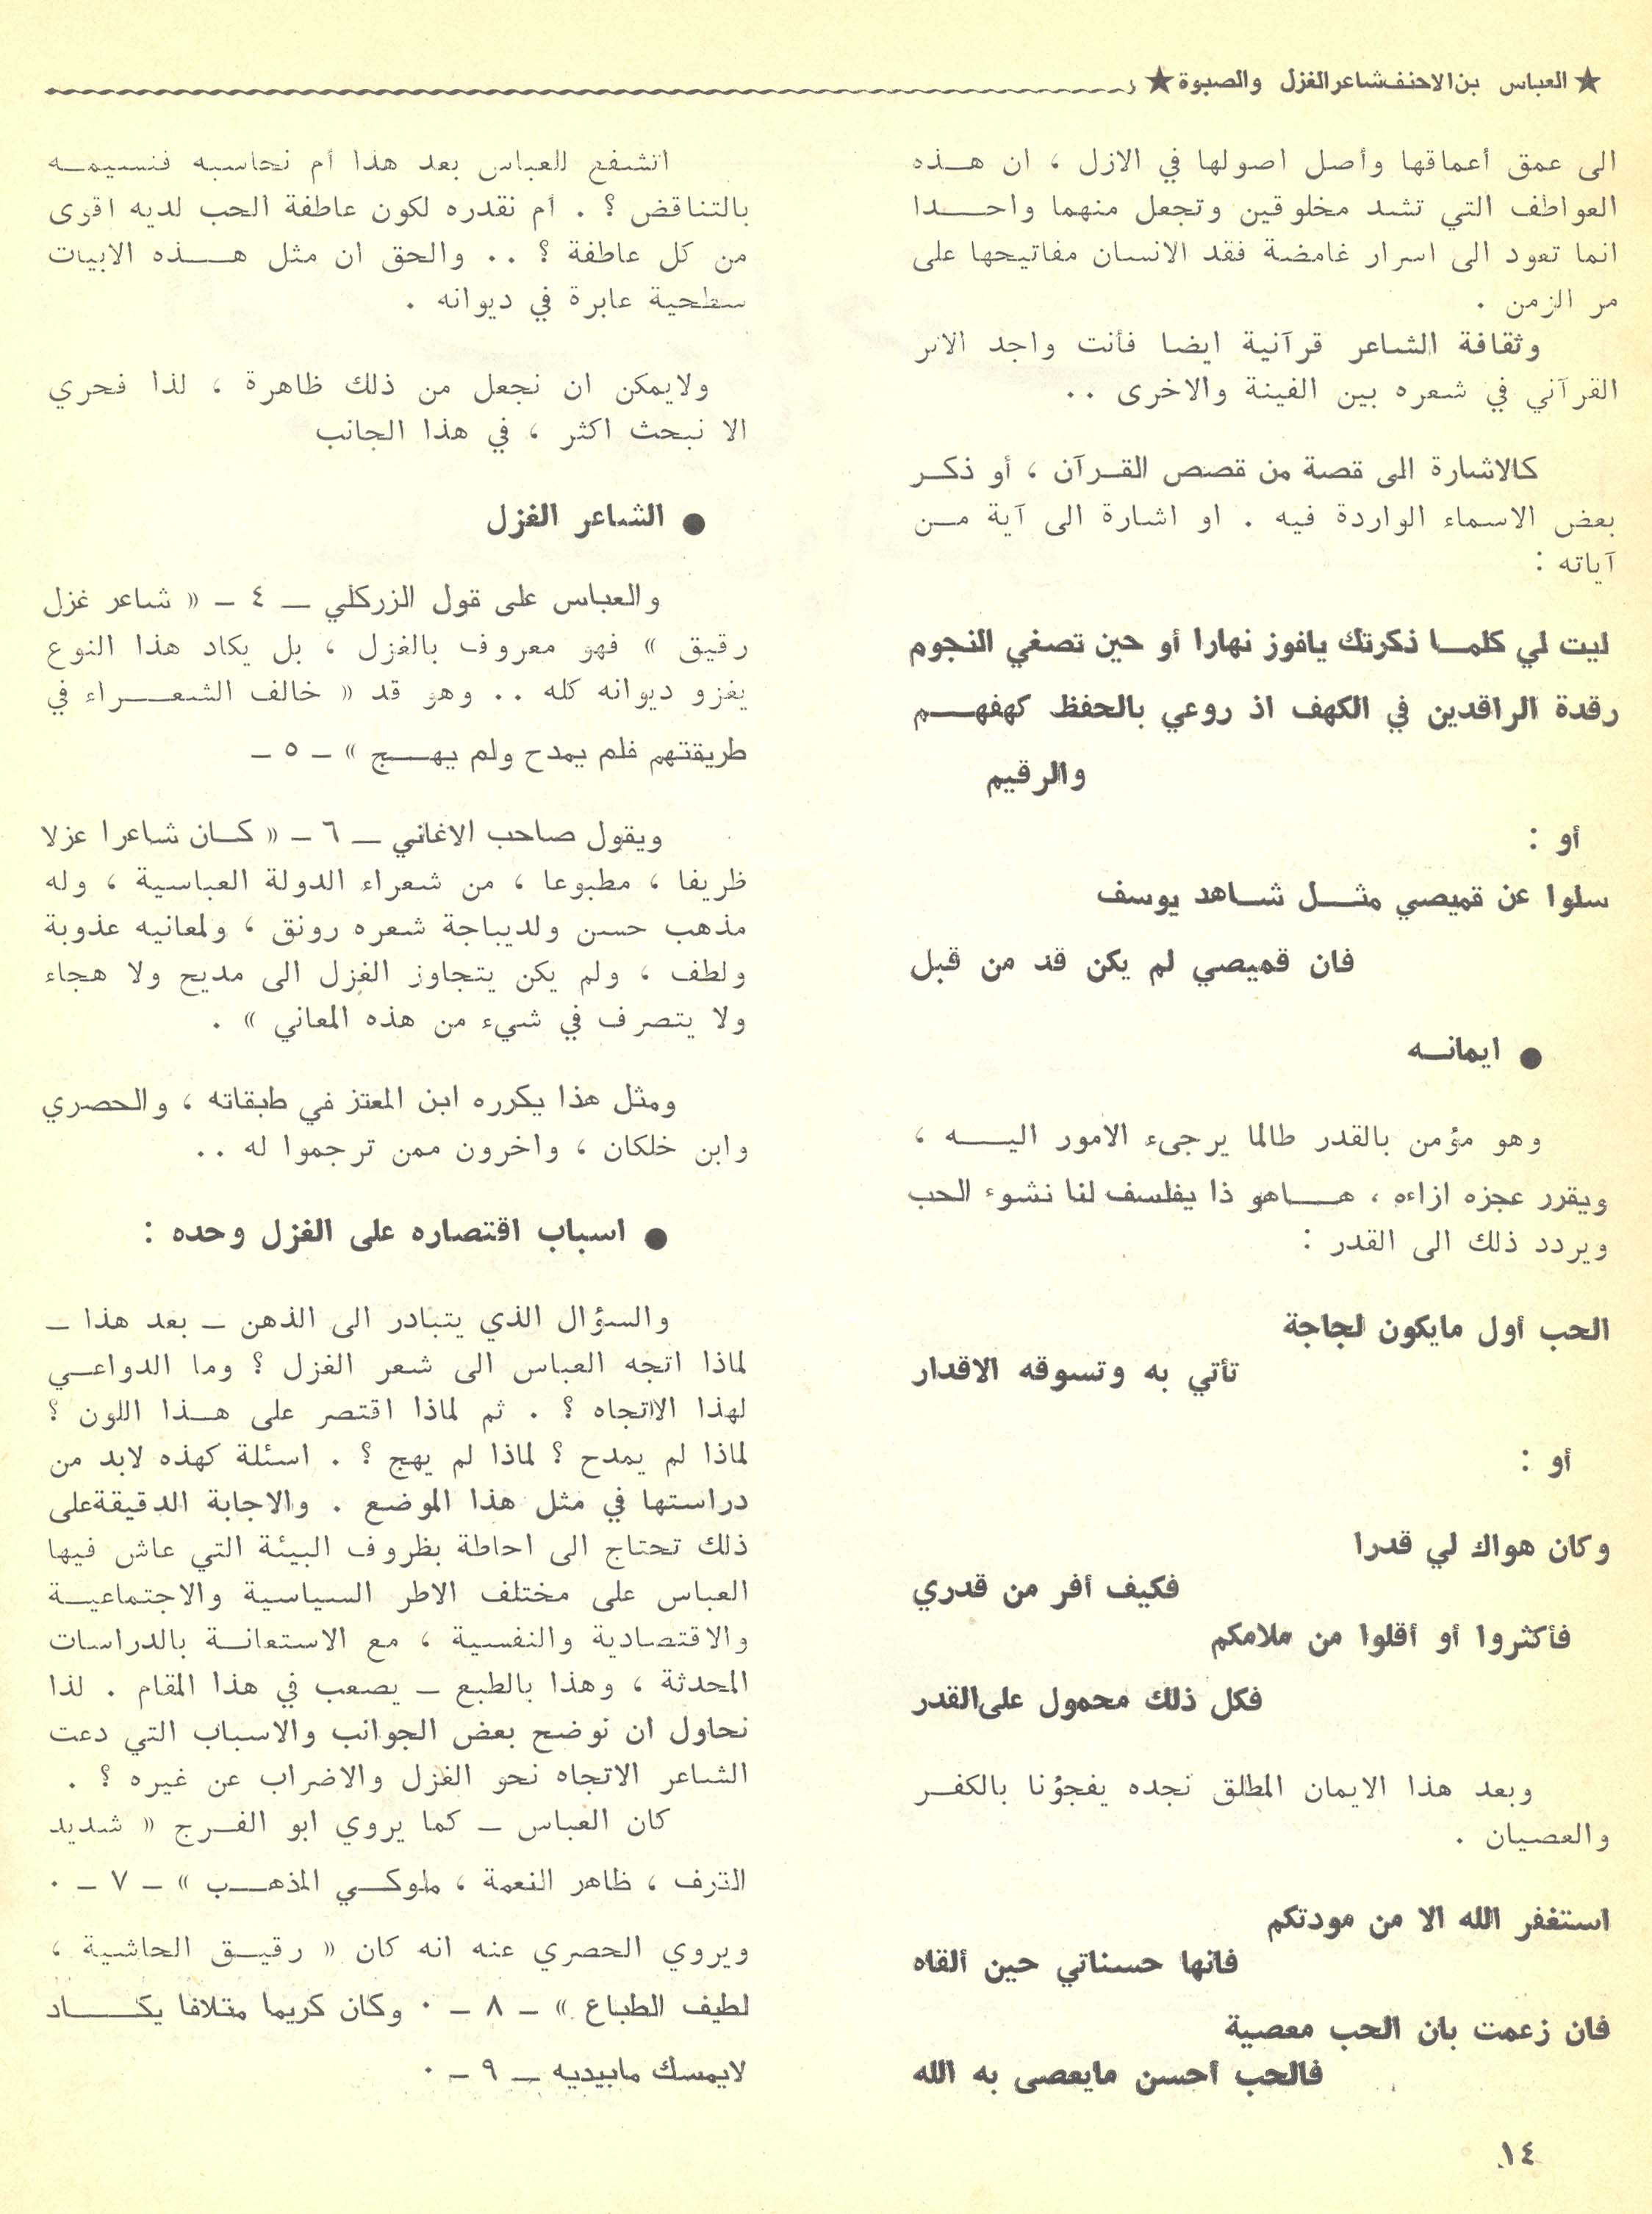 ★ العباس بن الاحنف شاعر الغزل والصبوة ★
الى عمق أعماقها وأصل اصولها في الازل ، ان هـــذه
العواطف التي تشد مخلوقين وتجعل منهما واحـــدا
انما تعود الى اسرار غامضة فقد الانسان مفاتيحها على
مر الزمن .
وثقافة الشاعر قرآنية ايضا فأنت واجد الاثر
القرآني في شعره بين الفينة والاخرى ..
كالاشارة الى قصة من قصص القــرآن ، أو ذكــر
بعض الاسماء الواردة فيه . او اشارة الى آية مــن
آياته :
ليت لي كلمــا ذكرتك يافوز نهارا أو حين تصغي النجوم
رقدة الراقدين في الكهف اذ روعي بالحفظ كهفهـــم
والرقيم
أو :
سلوا عن قميصي مثـــل شــاهد يوسف
فان قميصي لم يكن قد من قبل
● ايمانــه
وهو مؤمن بالقدر طالما يرجىء الامور اليـــه ،
ويقرر عجزه ازاءه ، هـــاهو ذا يفلسف لنا نشوء الحب
ويردد ذلك الى القدر :
الحب أول مايكون لجاجة
تأتي به وتسوقه الاقدار
أو :
وكان هواك لي قدرا
فكيف أفر من قدري
فأكثروا أو أقلوا من ملامكم
فكل ذلك محمول على القدر
وبعد هذا الايمان المطلق نجده يفجؤنا بالكفــر
والعصيان .
استغفر الله الا من مودتكم
فانها حسناتي حين ألقاه
فان زعمت بان الحب معصية
فالحب أحسن مايعصى به الله
انشفع للعباس بعد هذا أم نحاسبه فنسيمــه
بالتناقض ؟ . أم نقدره لكون عاطفة الحب لديه اقوى
من كل عاطفة ؟ .. والحق ان مثل هـــذه الابيات
سطحية عابرة في ديوانه .
ولايمكن ان نجعل من ذلك ظاهرة ، لذا فحري
الا نبحث اكثر ، في هذا الجانب
● الشاعر الغزل
والعباس على قول الزركلي ــ ٤ ــ « شاعر غزل
رقيق » فهو معروف بالغزل ، بل يكاد هذا النوع
يغزو ديوانه كله .. وهو قد « خالف الشعـــراء في
طريقتهم فلم يمدح ولم يهـــج » ــ ٥ ــ
ويقول صاحب الاغاني ــ ٦ ــ « كــان شاعرا غزلا
ظريفا ، مطبوعا ، من شعراء الدولة العباسية ، وله
مذهب حسن ولديباجة شعره رونق ، ولمعانيه عذوبة
ولطف ، ولم يكن يتجاوز الغزل الى مديح ولا هجاء
ولا يتصرف في شيء من هذه المعاني » .
ومثل هذا يكرره ابن المعتز في طبقاته ، والحصري
وابن خلكان ، واخرون ممن ترجموا له ..
● اسباب اقتصاره على الغزل وحده :
والسؤال الذي يتبادر الى الذهن ــ بعد هذا ــ
لماذا اتجه العباس الى شعر الغزل ؟ وما الدواعــي
لهذا الاتجاه ؟ . ثم لماذا اقتصر على هــذا اللون ؟
لماذا لم يمدح ؟ لماذا لم يهج ؟ . اسئلة كهذه لابد من
دراستها في مثل هذا الموضع . والاجابة الدقيقة على
ذلك تحتاج الى احاطة بظروف البيئة التي عاش فيها
العباس على مختلف الاطر السياسية والاجتماعيــة
والاقتصادية والنفسية ، مع الاستعانــة بالدراسات
المحدثة ، وهذا بالطبع ــ يصعب في هذا المقام . لذا
نحاول ان نوضح بعض الجوانب والاسباب التي دعت
الشاعر الاتجاه نحو الغزل والاضراب عن غيره ؟ .
كان العباس ــ كما يروي ابو الفــرج « شديد
الترف ، ظاهر النعمة ، ملوكــي المذهــب » ــ ٧ ــ .
ويروي الحصري عنه انه كان « رقيــق الحاشية ،
لطيف الطباع » ــ ٨ ــ . وكان كريما متلافا يكـــاد
لايمسك مابيديه ــ ٩ ــ .
١٤